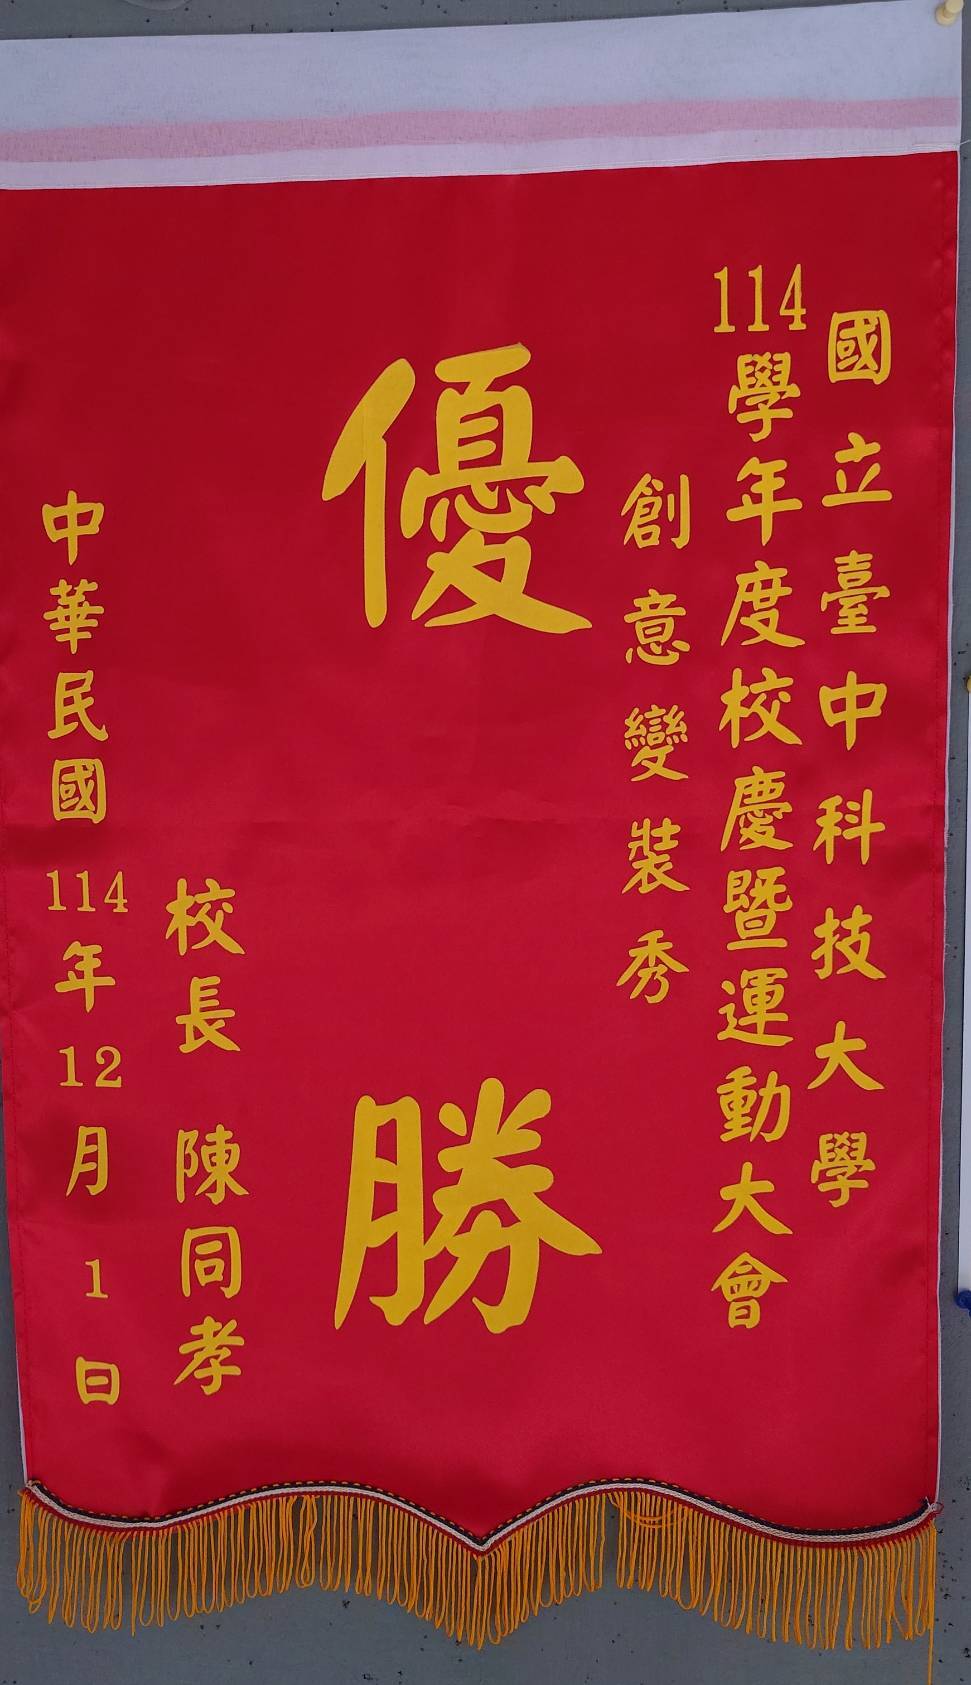 國立臺中科技大學
114學年度校慶暨運動大會
創意變裝秀
優勝
校長 陳同孝
中華民國114年12月1日